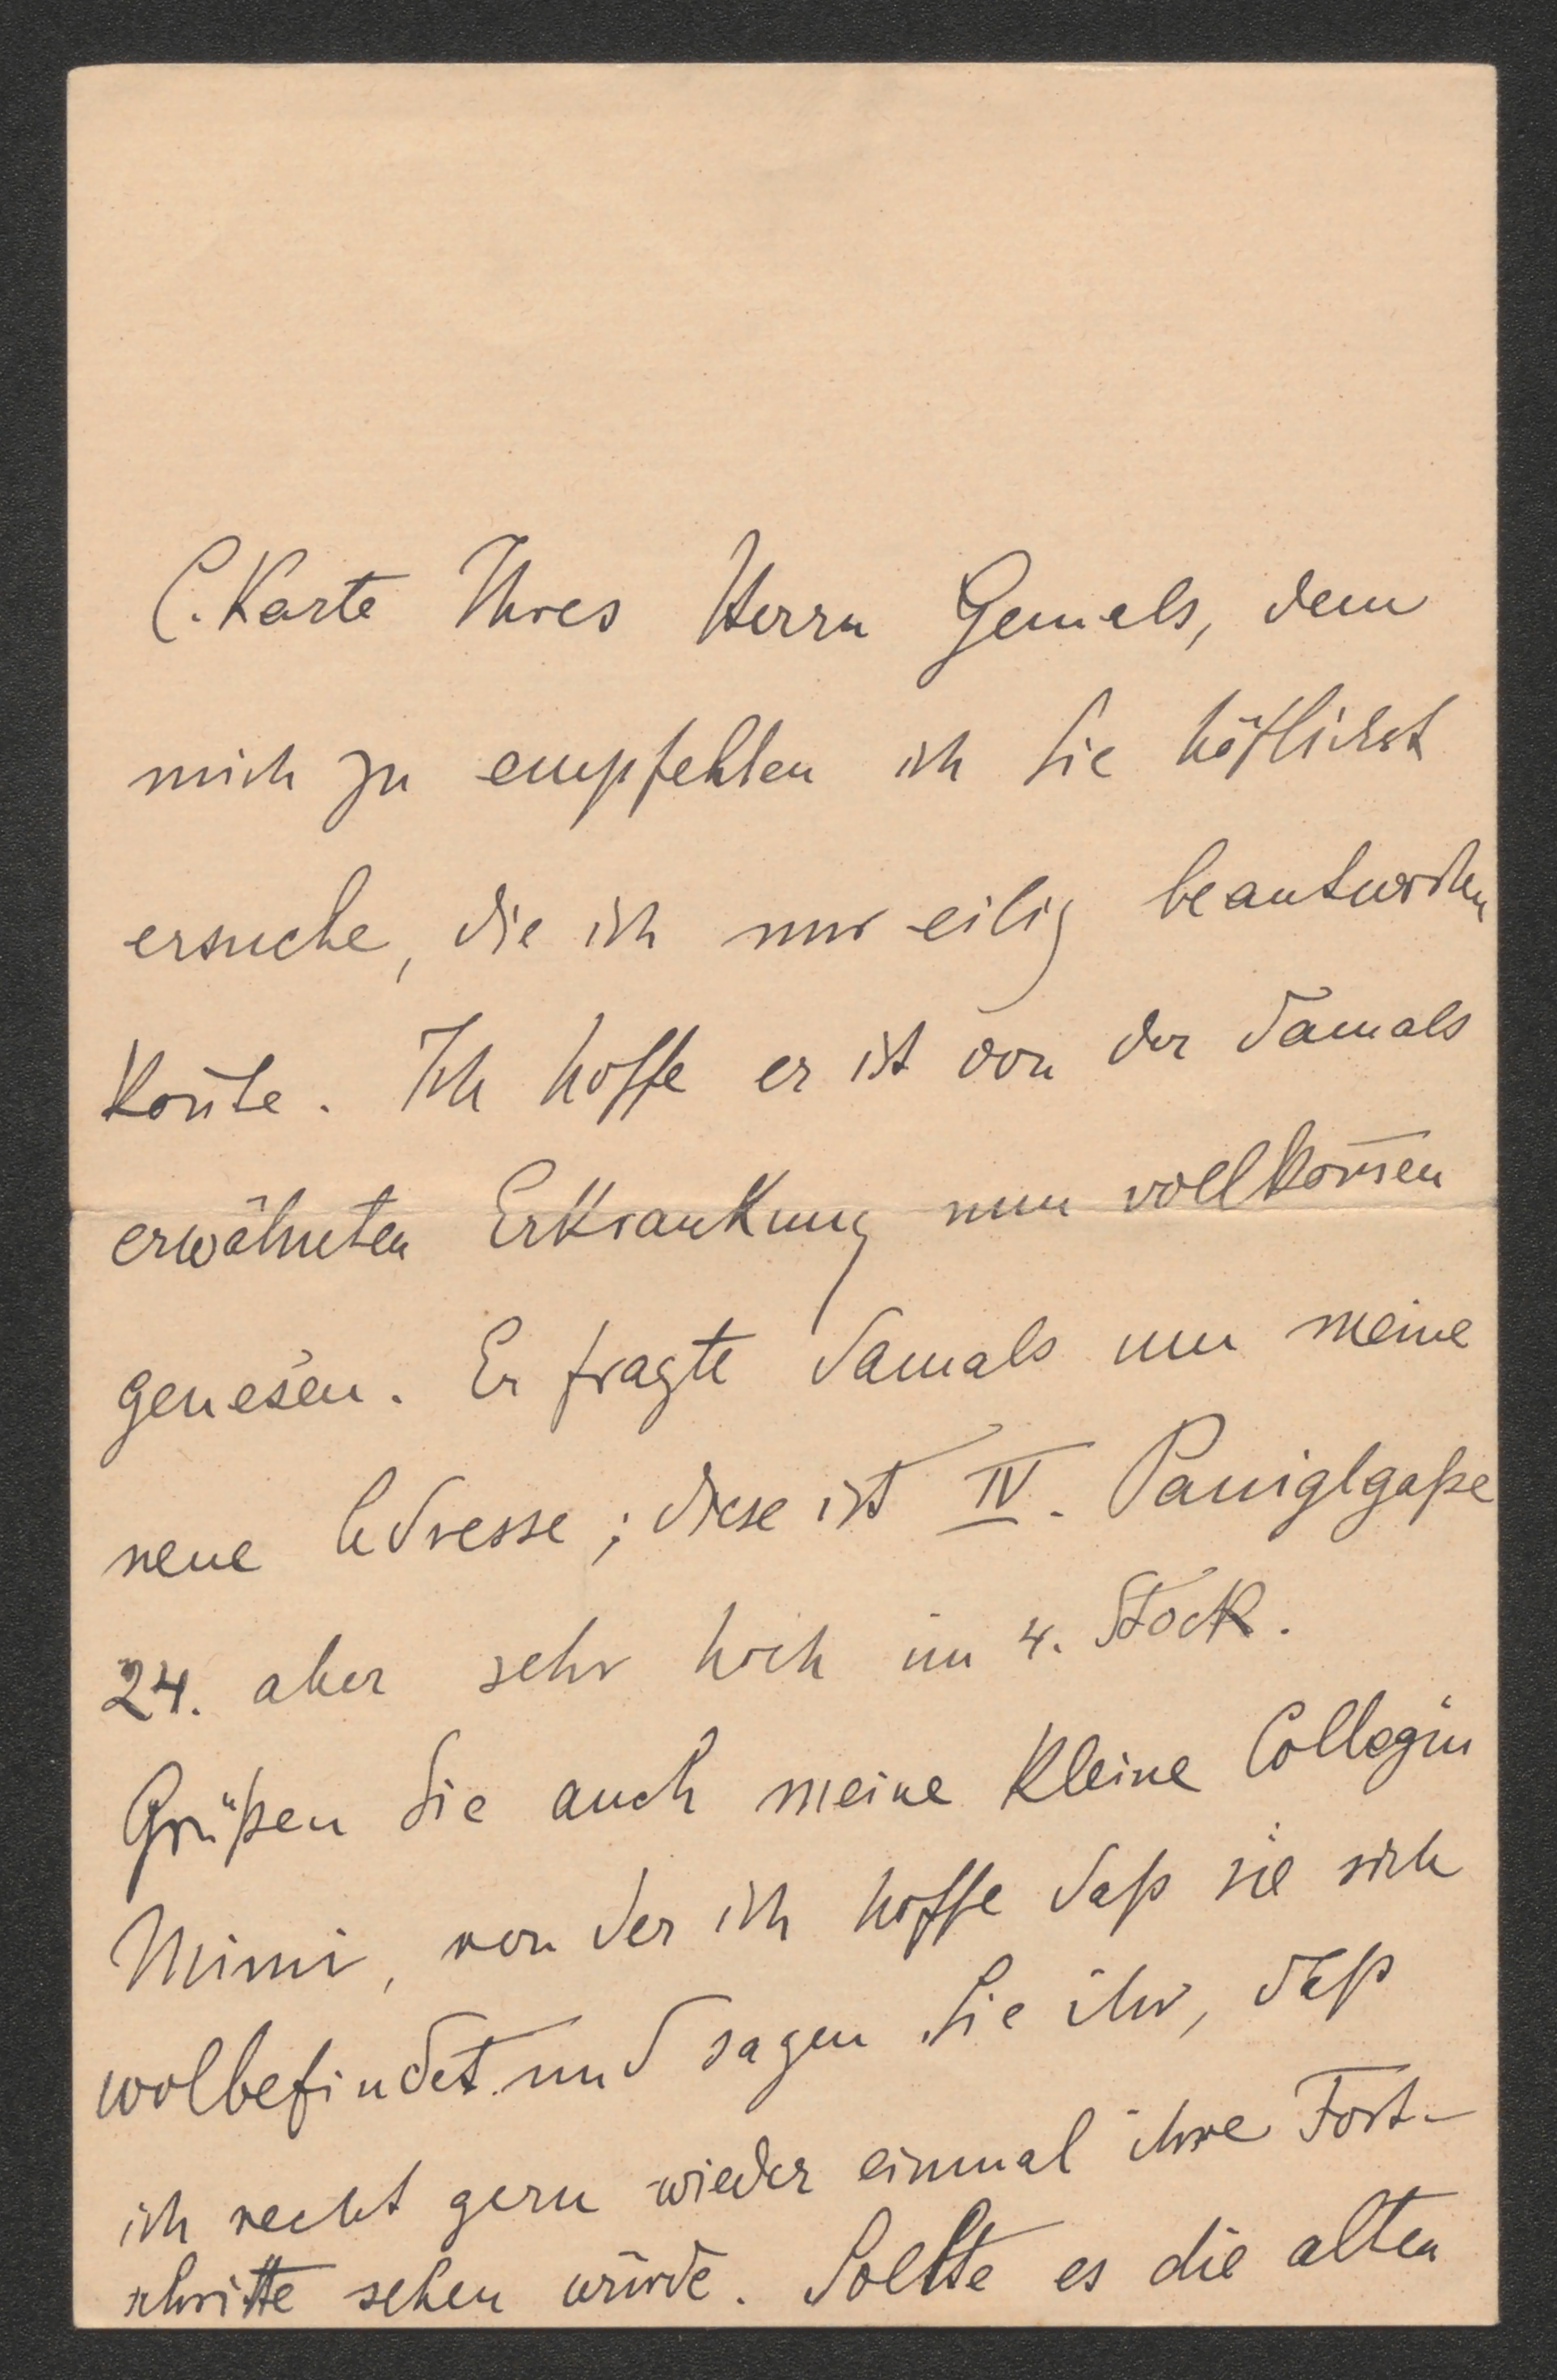 C. Karte Ihres Herrn Gemals, dem
mich zu empfehlen ich Sie höflichst
ersuche, die ich nur eilig beantworten
kon̄te. Ich hoffe er ist von der damals
erwähnten Erkrankung nun vollkom̄en
genesen. Er fragte damals um meine
neue Adresse; diese ist IV. Paniglgaße
24. aber sehr hoch im 4. Stock.
Grüßen Sie auch meine kleine Collegin
Mimi, von der ich hoffe daß sie sich
wolbefindet und sagen Sie ihr, daß
ich recht gern wieder einmal ihre Fort-
schritte sehen würde. Sollte es die alten